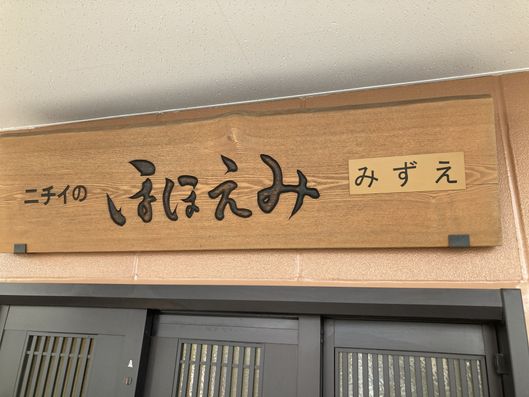 ニチイの ほほえみ みずえ